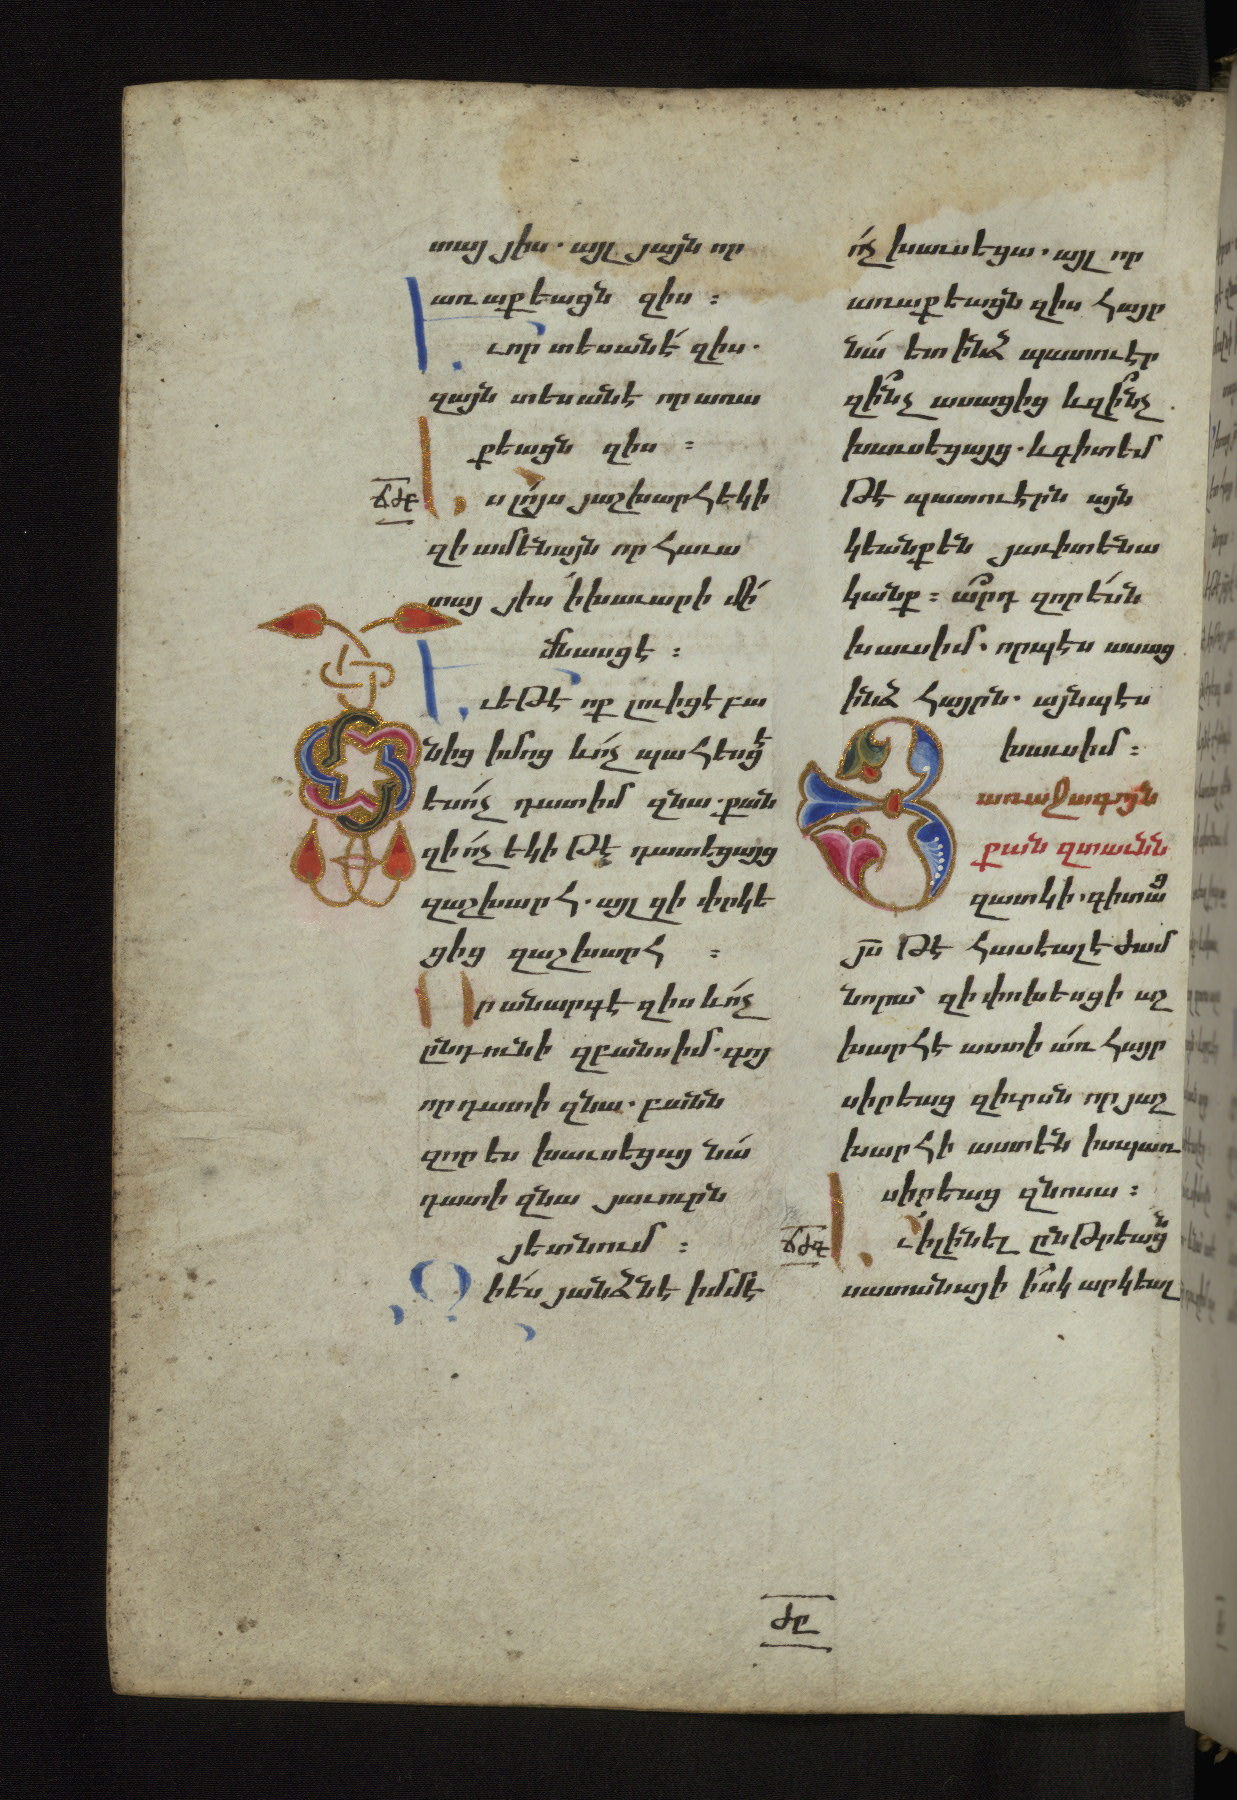 տայ յիս. այլ յայն որ
առաքեացն զիս :
Եւ որ տեսանէ զիս.
զայն տեսանէ որ առա
քեացն զիս :
ՃԺԸ
Ես լոյս յաշխարհ եկի
զի ամենայն որ հաւա
տայ յիս ի խաւարի մի՛
մնասցէ :
Եւ եթէ ոք լուիցէ բա
նից իմոց և ոչ պահեսցէ
ես ոչ դատիմ զնա. քան
զի ոչ եկի թէ դատեցայց
զաշխարհ. այլ զի փրկե
ցից զաշխարհ :
Որ անարգէ զիս և ոչ
ընդունի զբանս իմ. գոյ
որ դատի զնա. բանն
զոր ես խաւսեցայ նա՛
դատի զնա յաւուրն
յետնում :
Զի ես յանձնէ իմմէ
ոչ խաւսեցա. այլ որ
առաքեացն զիս հայր
նա՛ ետ ինձ պատուէր
զի՞նչ ասացից և զի՞նչ
խաւսեցայց. և գիտեմ
թէ պատուէրն այն
կեանք են յաւիտենա
կանք : արդ զոր ես
խաւսիմ. որպէս ասաց
ինձ հայրն. այնպէս
խաւսիմ :
Յառաջագոյն
քան զտաւնն
զատկի. գիտաց
յս թէ հասեալ է ժամ
նորա՝ զի փոխեսցի յաշ
խարհէ աստի առ հայր
սիրեաց զիւրսն որ յաշ
խարհի աստ էին իսպառ
սիրեաց զնոսա :
ՃԺԹ
Եւ ի լինել ընթրեացն
սատանայի իսկ արկեալ
ԺԸ